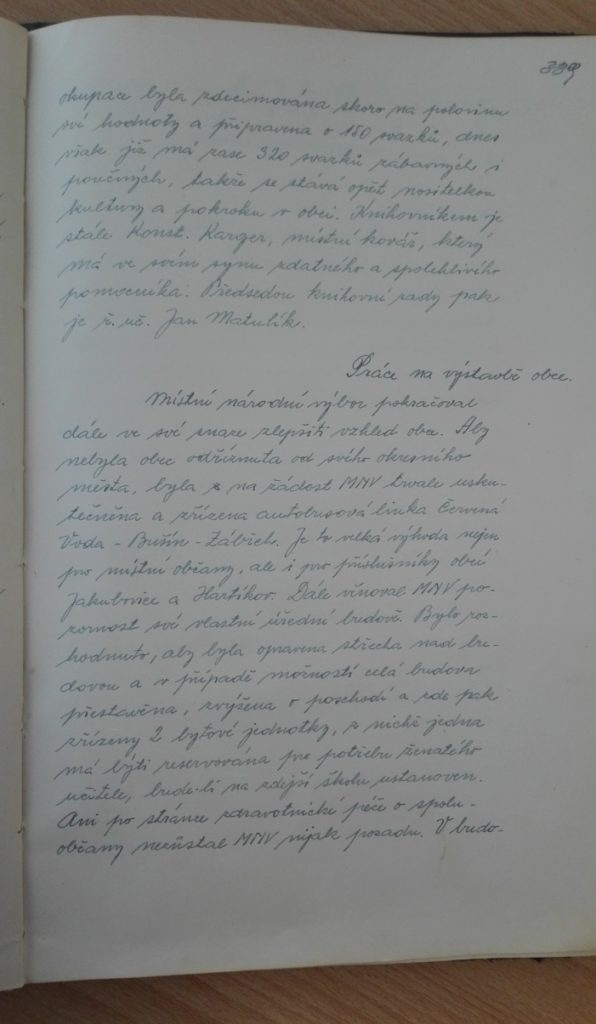 339
okupace byla zdecimována skoro na polovinu
své hodnoty a připravena o 150 svazků, dnes
však již má zase 320 svazků zábavných i
poučných, takže se stává opět nositelkou
kultury a pokroku v obci. Knihovníkem je
stále Konst. Karger, místní kovář, který
má ve svém synu zdatného a spolehlivého
pomocníka. Předsedou knihovní rady pak
je ř. uč. Jan Matulík.
Práce na výstavbě obce.
Místní národní výbor pokračoval
dále ve své snaze zlepšiti vzhled obce. Aby
nebyla obec odříznuta od svého okresního
města, byla z na žádost MNV trvale usku-
tečněna a zřízena autobusová linka Červená
Voda - Bušín - Zábřeh. Je to velká výhoda nejen
pro místní občany, ale i pro příslušníky obcí
Jakubovice a Hartíkov. Dále věnoval MNV po-
zornost své vlastní úřední budově. Bylo roz-
hodnuto, aby byla opravena střecha nad bu-
dovou a v případě možností celá budova
přestavěna, zvýšena o poschodí a zde pak
zřízeny 2 bytové jednotky, z nichž jedna
má býti reservována pro potřebu ženatého
učitele, bude-li na zdejší školu ustanoven.
Ani po stránce zdravotnické péče o spolu-
občany nezůstal MNV nijak pozadu. V budo-